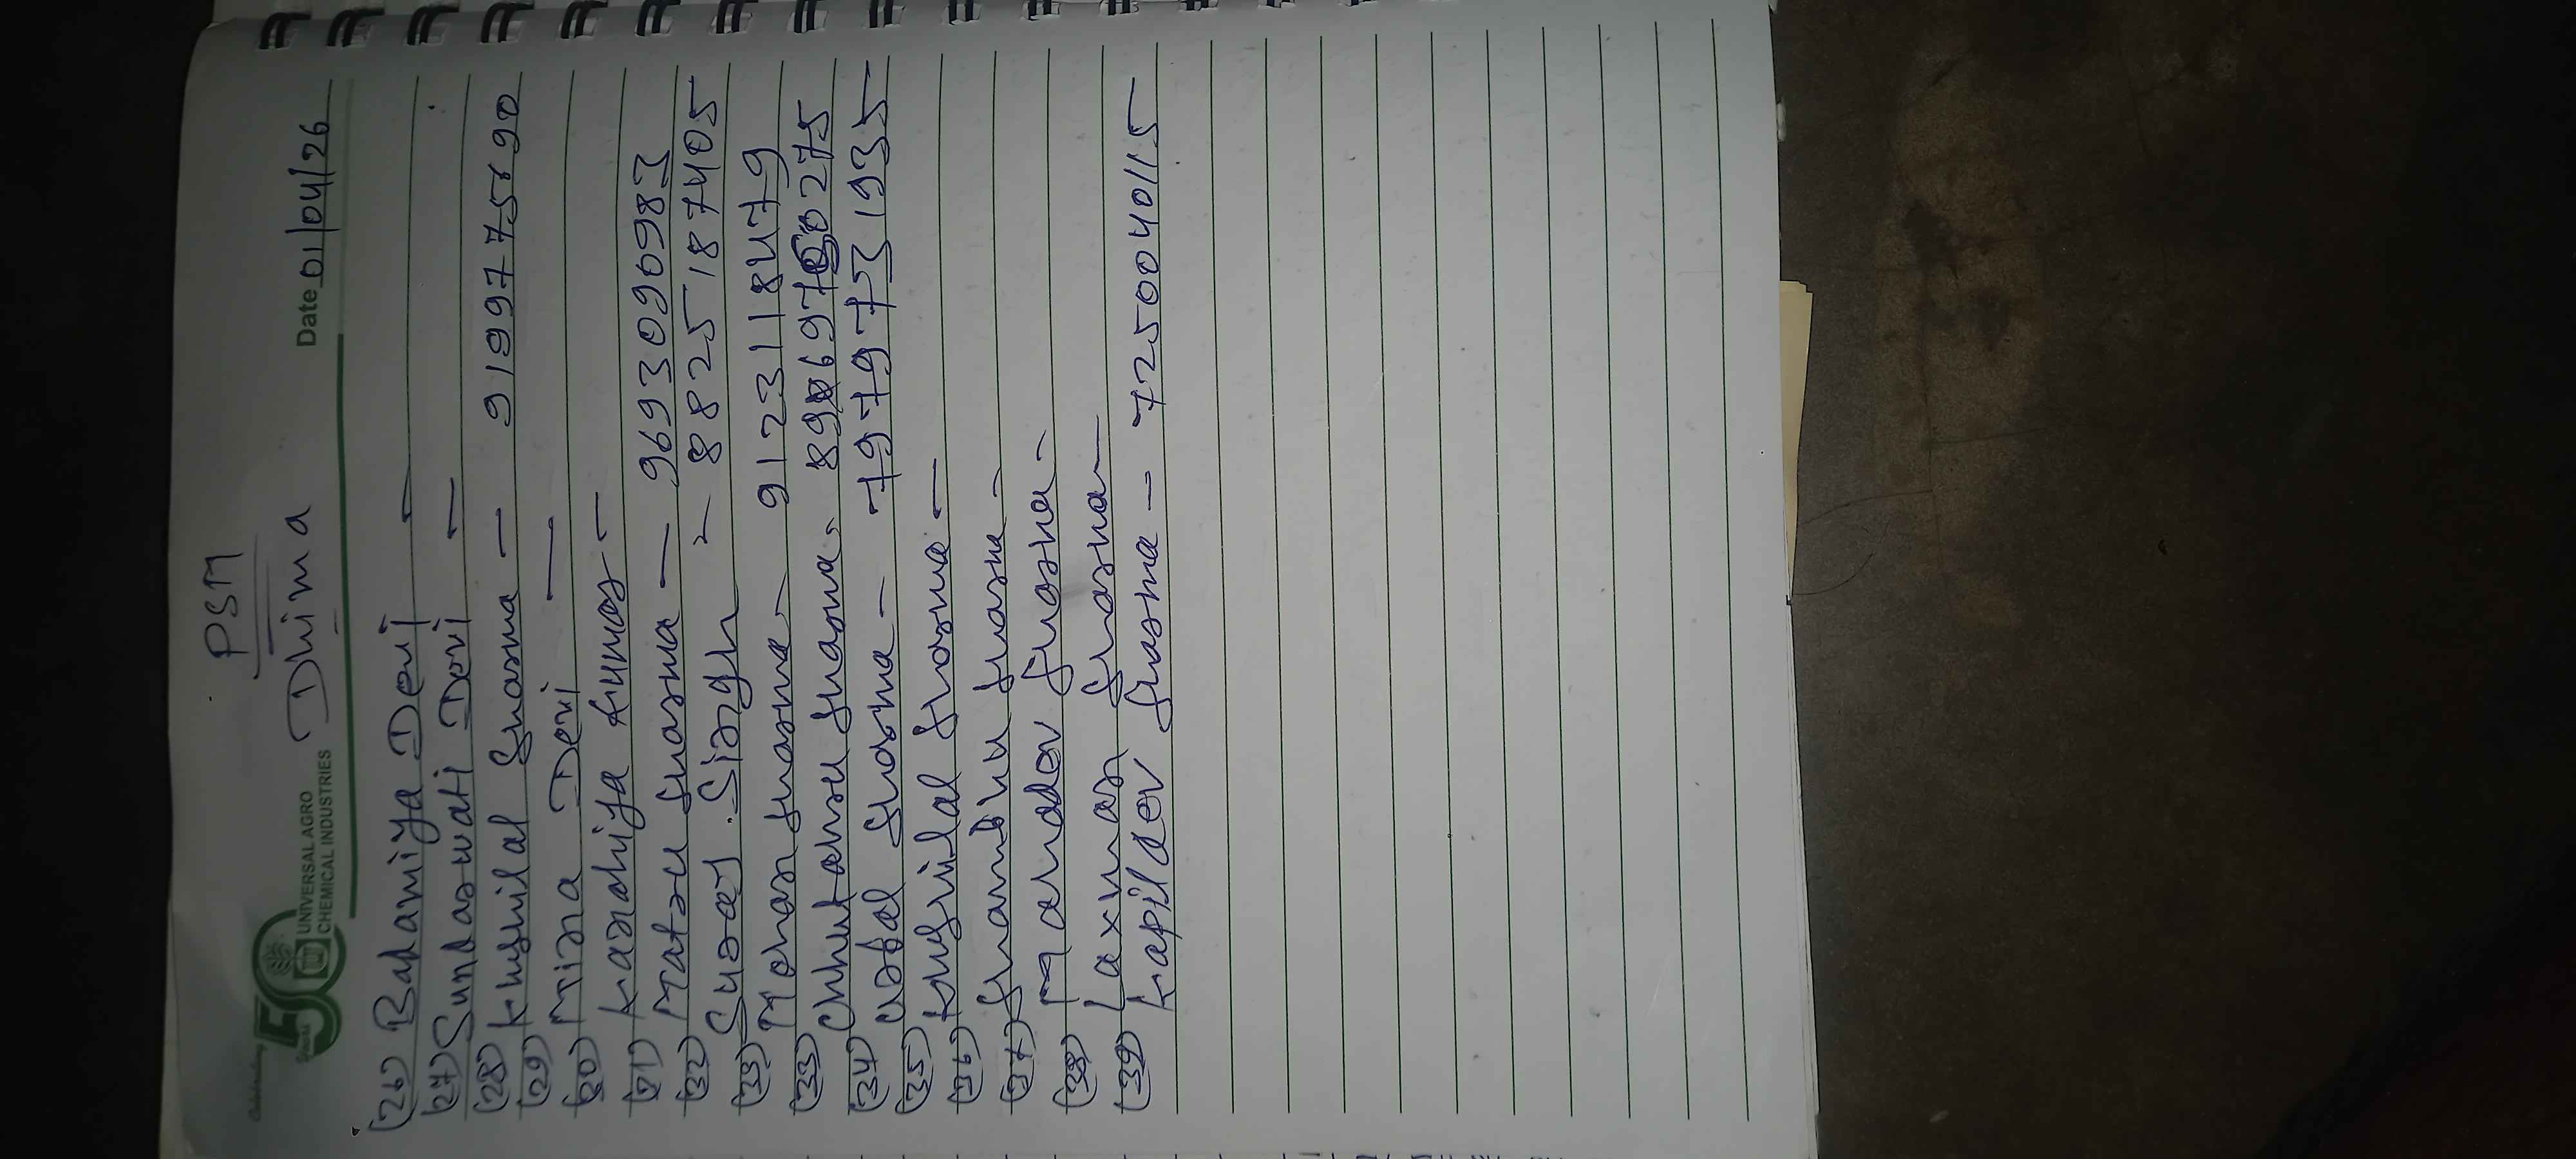 PSM
Celebrating
50
Years
UNIVERSAL AGRO
CHEMICAL INDUSTRIES
Dhima
Date 01/04/26
(26) Badamiya Devi —
(27) Sundarwati Devi —
(28) Khushilal Sharma — 9199775890
(29) Mina Devi —
(30) Kanahiya Kumar —
(31) Matru Sharma — 9693096983
(32) Suraj Singh — 8825187405
(33) Mohan Sharma - 9123118479
(33) Sharma
(34) Sharma - 79797531935
(35) Sharma —
(36) Sharma -
(37) Mahadev Sharma -
(38) Laxman Sharma —
(39) Kapildev Sharma - 7250040115